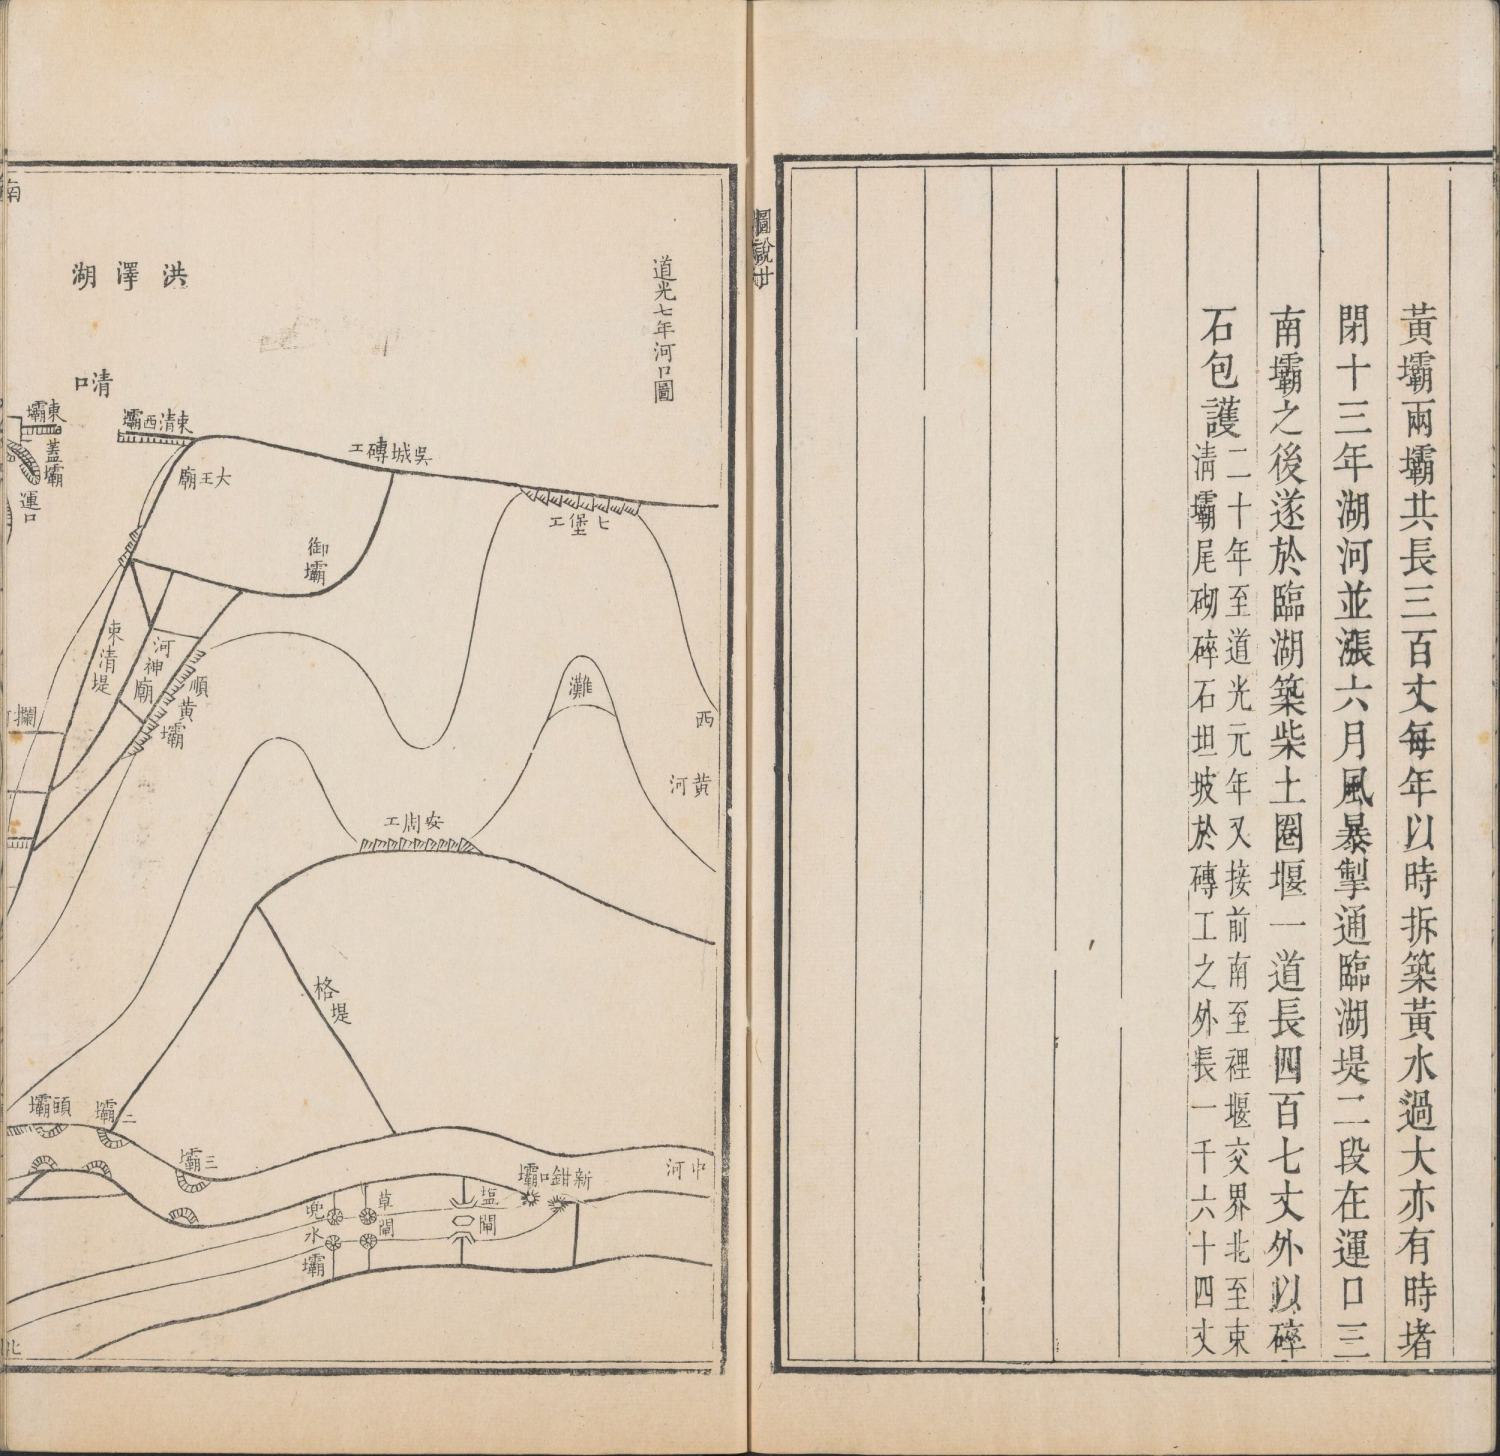 黃壩兩壩共長三百丈每年以時拆築黃水過大亦有時堵
閉十三年湖河並漲六月風暴掣通臨湖堤二段在運口三
南壩之後遂於臨湖築柴土圈堰一道長四百七丈外以碎
石包護
二十年至道光元年又接前南至裡堰交界北至束
清壩尾砌碎石坦坡於磚工之外長一千六十四丈
圖說廿
道光七年河口圖
西
黃河
中河
七堡工
灘
新鉗口壩
塩閘
吳城磚工
安周工
草閘
御壩
格堤
兜水壩
大王廟
順黃壩
三壩
洪澤湖
束清西壩
河神廟
束清堤
二壩
清口
頭壩
東壩
蓋壩
運口
攔
南
北